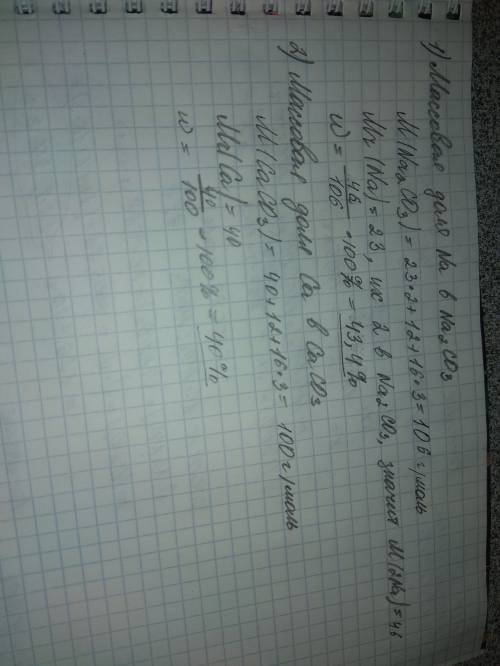 1) Массовая доля Na в Na₂CO₃
M(Na₂CO₃) = 23·2+12+16·3 = 106 г/моль
Mr(Na) = 23, их 2 в Na₂CO₃, значит M(2Na) = 46
w = 46/106 · 100% = 43,4%
2) Массовая доля Ca в CaCO₃
M(CaCO₃) = 40+12+16·3 = 100 г/моль
Mr(Ca) = 40
w = 40/100 · 100% = 40%